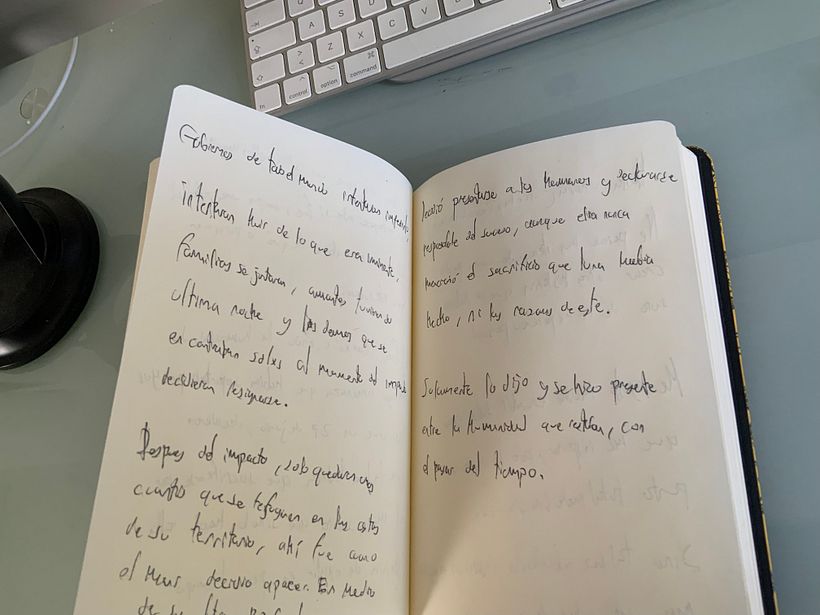 A
S
Z
X
C
V
B
N
M
fn
control
option
command
⌘
Gobiernos de todo el mundo intentaron
intentaron huir de lo que era inminente,
familias se juntaron, amantes tuvieron su
ultima noche y los demas que se
encontraban solos al momento del impacto
decidieron resignarse.
Despues del impacto, solo quedaron unos
cuantos que se en las
de su territorio, ahi fue como
el decidio En medio
decidió presentarse a los Humanos y declararse
responsable del suceso, aunque ella nunca
mencionó el sacrificio que luna habia
hecho, ni las razones de este.
Solamente lo dijo y se hizo presente
entre la Humanidad que restaban, con
el pasar del tiempo.